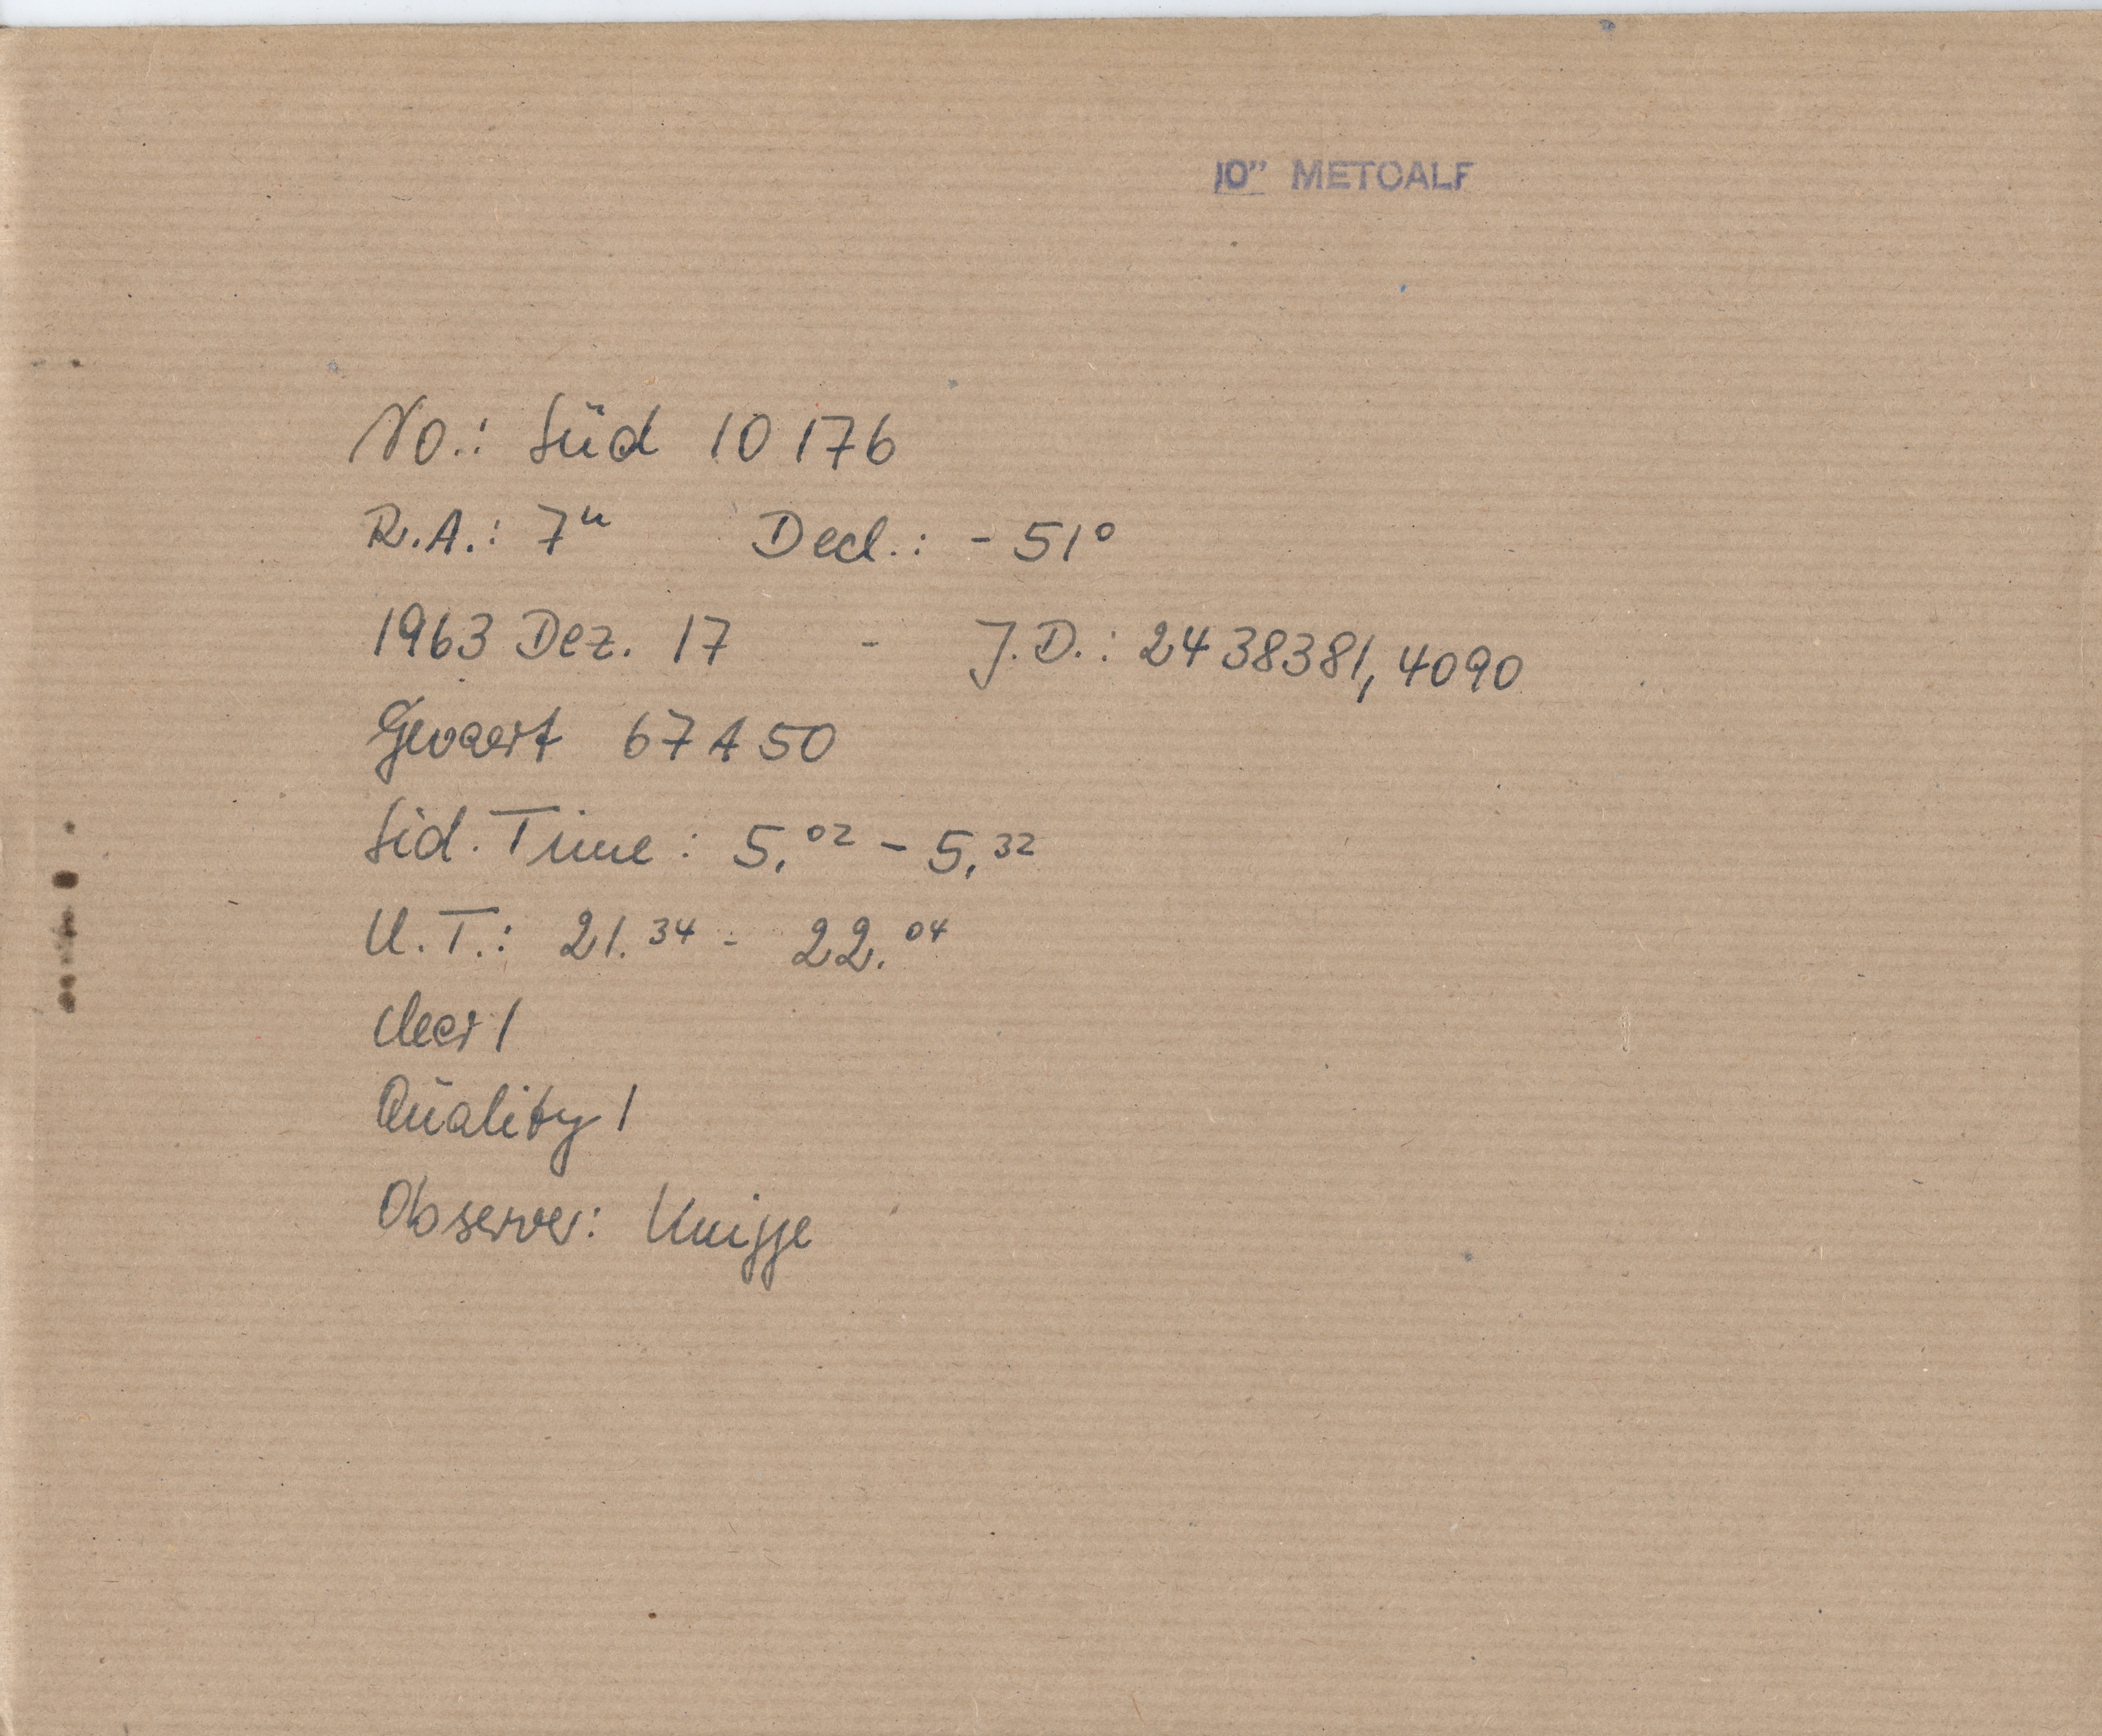 10" METCALF
No.: Süd 10176
R.A.: 7h Decl.: -51°
1963 Dez. 17 - J.D.: 2438381,4090
Gevaert 67A50
Sid. Time: 5.02 - 5.32
U.T.: 21.34 - 22.04
clear 1
Quality 1
Observer: Knigge